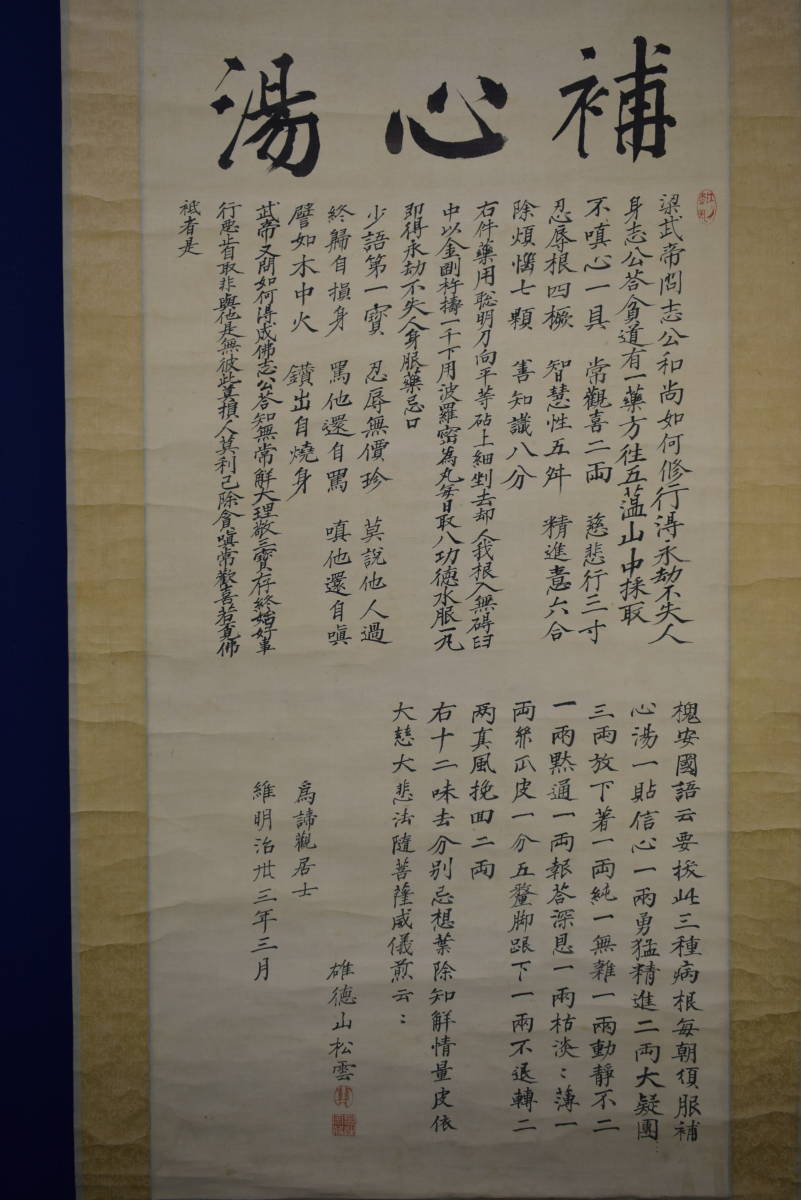 補心湯
梁武帝問志公和尚如何修行得永劫不失人
身志公答貧道有一藥方往五蘊山中採取
不嗔心一具 常觀喜二兩 慈悲行三寸
忍辱根四橛 智慧性五舛 精進意六合
除煩惱七顆 善知識八分
右件藥用聡明刀向平等砧上細剉去却人我根入無碍臼
中以金剛杵擣一千下用波羅密為丸每日取八功德水服一丸
即得永劫不失人身服藥忌口
少語第一寶 忍辱無價珍 莫說他人過
終歸自損身 罵他還自罵 嗔他還自嗔
譬如木中火 鑽出自燒身
武帝又問如何得成佛志公答知無常解大理敬三寶存終始好事
行悪皆取非與他是無彼此莫損人莫利己除貪嗔常歡喜若覓佛
祗者是
槐安國語云要拔此三種病根每朝須服補
心湯一貼信心一兩勇猛精進二両大疑團
三両放下著一両純一無雜一兩動靜不二
一兩黙通一両報答深恩一兩枯淡〻薄一
両條瓜皮一分五鳌脚跟下一兩不退轉二
両真風挽回二両
右十二味去分別忌想葉除知解情量皮依
大慈大悲法隨菩薩威儀煎云〻
為諦觀居士
維明治丗三年三月
雄德山松雲